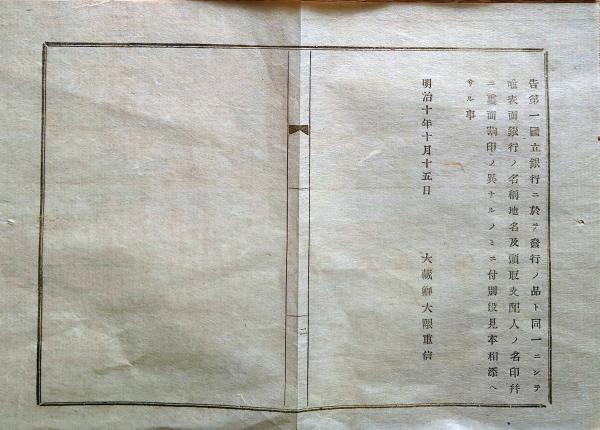 告第一國立銀行ニ於テ發行ノ品ト同一ニシテ
唯表面銀行ノ名稱地名及頭取支配人ノ名印幷
ニ裏面割印ノ異ナルノミニ付別段見本相添ヘ
サル事
明治十年十月十五日
大藏卿大隈重信
二